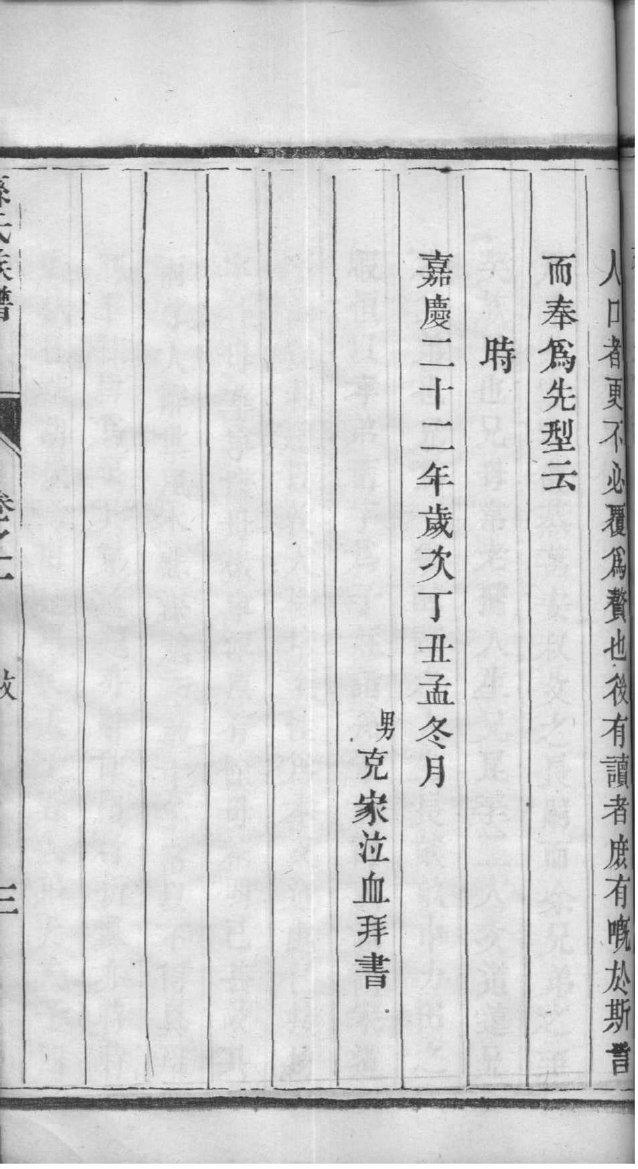 人口者更不必覆爲贅也後有讀者庶有嘅於斯言
而奉爲先型云
時
嘉慶二十二年歲次丁丑孟冬月
男
克家泣血拜書
孫氏族譜
卷之
三